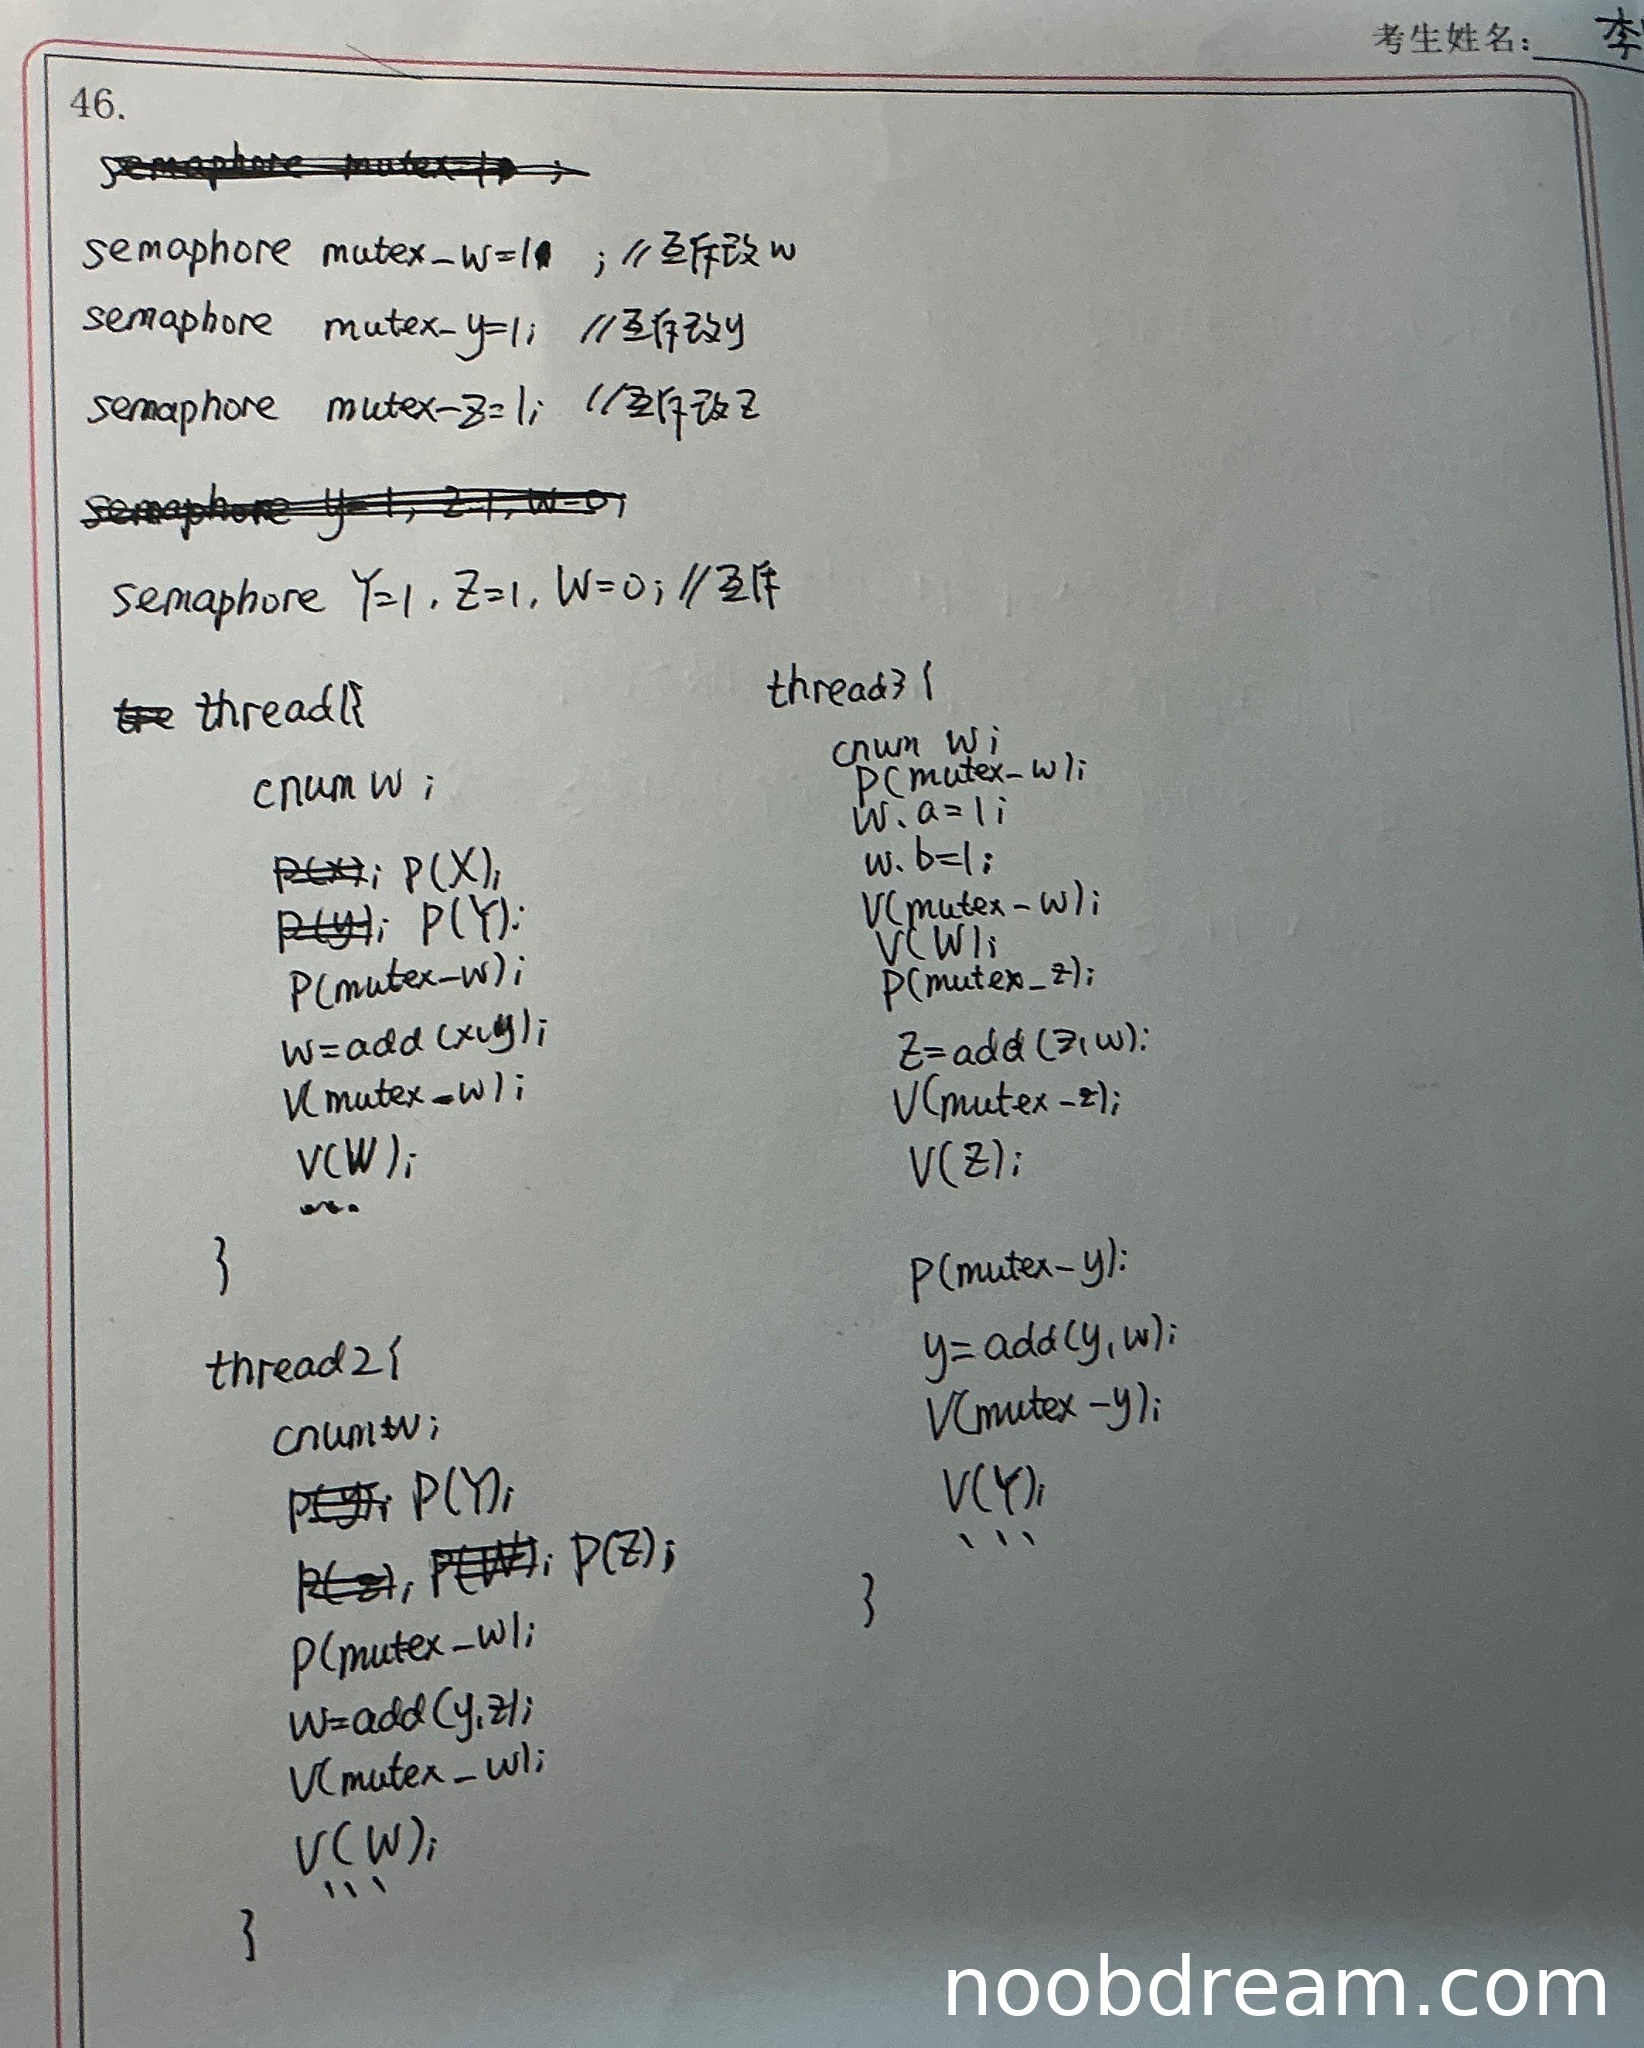 考生姓名: 李
46.
semaphore mutex-1 ;
semaphore mutex-w=1 ; //互斥改w
semaphore mutex-y=1; //互斥改y
semaphore mutex-z=1; //互斥改z
semaphore y=1, z=1, w=0;
semaphore Y=1, Z=1, W=0; //互斥
tre thread1{
cnum w ;
P(x); P(X);
P(y); P(Y);
P(mutex-w);
w=add(x,y);
V(mutex-w);
V(W);
...
}
thread2{
cnum w;
P(y); P(Y);
P(z), P(W); P(Z);
P(mutex-w);
w=add(y,z);
V(mutex-w);
V(W);
...
}
thread3{
cnum w;
P(mutex-w);
w.a=1;
w.b=1;
V(mutex-w);
V(W);
P(mutex-z);
z=add(z,w);
V(mutex-z);
V(Z);
P(mutex-y);
y=add(y,w);
V(mutex-y);
V(Y);
...
}
noobdream.com